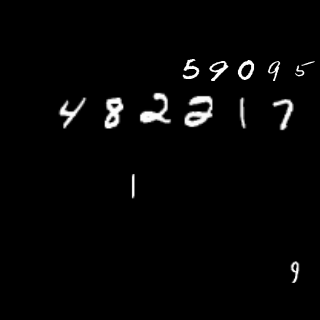 59095
482217
1
9